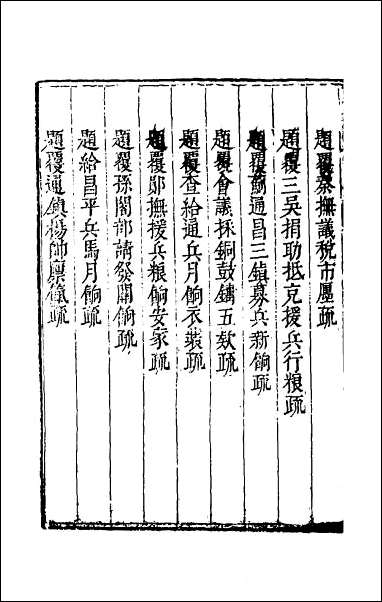 題覆撫議稅市廛疏
題覆三吳捐助抵充援兵行粮疏
題覆薊通昌三鎮募兵新餉疏
題覆會議採銅鼓鑄五欵疏
題覆查給通兵月餉衣裝疏
題覆鄖撫援兵粮餉安家疏
題覆孫閣部請發關餉疏
題給昌平兵馬月餉疏
題覆通鎮楊帥廩疏